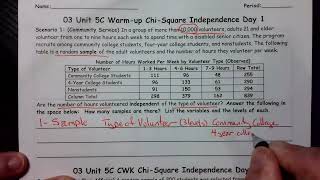 Name: Period: Date:
03 Unit 5C Warm-up Chi-Square Independence Day 1
Scenario 1: (Community Service) In a group of more than 10,000 volunteers, adults 21 and older
volunteer from one to nine hours each week to spend time with a disabled senior citizen. The program
recruits among community college students, four-year college students, and nonstudents. The following
table is a random sample of the adult volunteers and the number of hours they volunteer per week.
Number of Hours Worked Per Week by Volunteer Type (Observed)
Type of Volunteer 1-3 Hours 4-6 Hours 7-9 Hours Row Total
Community College Students 111 96 48 255
4-Year College Students 96 133 61 290
Nonstudents 91 150 53 294
Column Total 298 379 162 839
Are the number of hours volunteered independent of the type of volunteer? Answer the following in
the space below: How many samples are there? List the variables and the levels of each.
1 - Sample Type of Volunteer - (3 levels) Community College
4-year colle
03 Unit 5C CWK Chi-Square Independence Day